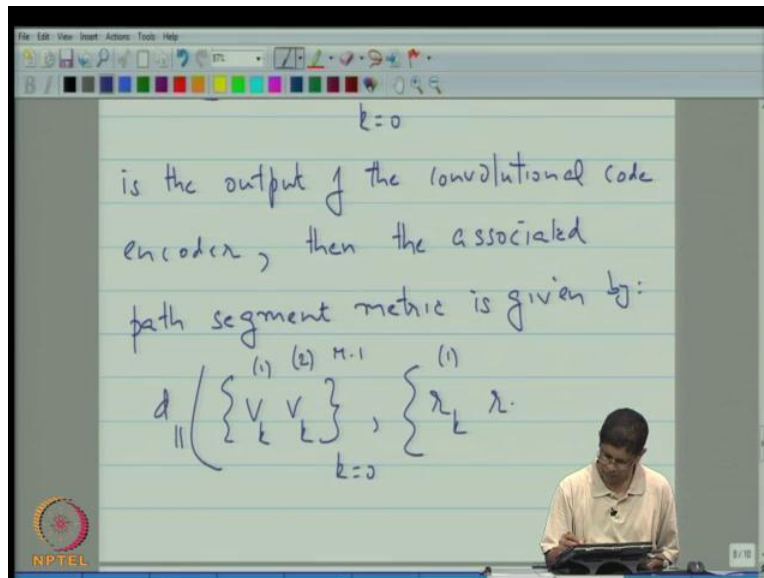 File Edit View Insert Actions Tools Help
87%
k=0
is the output of the convolutional code
encoder, then the associated
path segment metric is given by:
(1) (2) M-1 (1)
d_H ( { v_k v_k } , { r_k r.
k=0
NPTEL
8/10